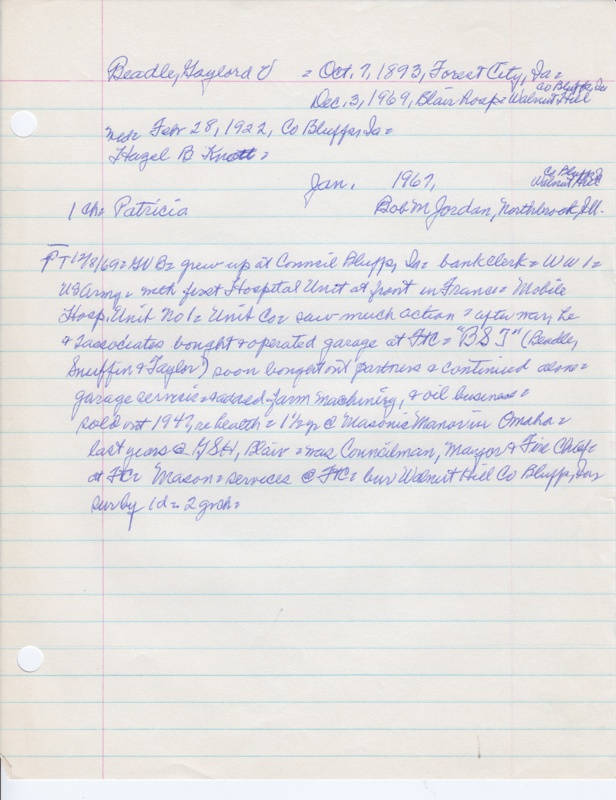 Beadle, Gaylord V = Oct. 7, 1893, Forest City, Ia =
Co Bluffs, Ia
Dec, 3, 1969, Blair Hosp = Walnut Hill
mar Febr 28, 1922, Co Bluffs, Ia =
Hazel B Knott =
Jan. 1967,
Co Bluffs, Ia
Walnut Hill
1 ch = Patricia Bob M Jordan, Northbrook, Ill.
PT 12/8/69 = GVB = grew up at Council Bluffs, Ia = bank clerk = WW1 =
US Army = with first Hospital Unit at front in France = Mobile
Hosp. Unit No 1 = Unit Co = saw much action = after mar, he
& 2 associates bought & operated garage at FtC = "BST" (Beadle,
Snuffin & Taylor) soon bought out partners & continued alone =
garage service = added farm machinery, & oil business =
sold out 1947, re health = 1½ yr @ Masonic Manor in Omaha =
last years @ Blair = was Councilman, Mayor & Fire Chief
at FtC = Mason = services @ FtC = bur Walnut Hill Co Bluffs, Ia =
sur by 1 d = 2 grch =